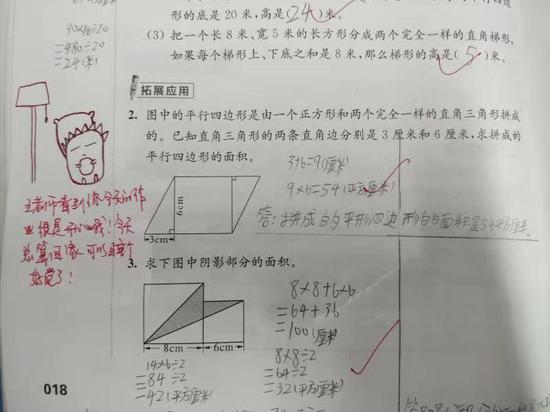 形的底是 20 米，高是( 24 )米。
30×16÷20
=480÷20
=24(米)
(3) 把一个长 8 米、宽 5 米的长方形分成两个完全一样的直角梯形，
如果每个梯形上、下底之和是 8 米，那么梯形的高是( 5 )米。
拓展应用
2. 图中的平行四边形是由一个正方形和两个完全一样的直角三角形拼成
的。已知直角三角形的两条直角边分别是 3 厘米和 6 厘米，求拼成的
平行四边形的面积。
3+6=9(厘米)
9×6=54(平方厘米)
6cm
3cm
答：拼成的平形四边形的面积是54平方厘米
王老师看到你今天的作
业很是开心哦！今天
总算回家可以睡个
好觉了！
3. 求下图中阴影部分的面积。
8cm
6cm
8×8+6×6
=64+36
=100(厘米)
8×8÷2
=64÷2
=32(平方厘米)
14×6÷2
=84÷2
=42(平方厘米)
018